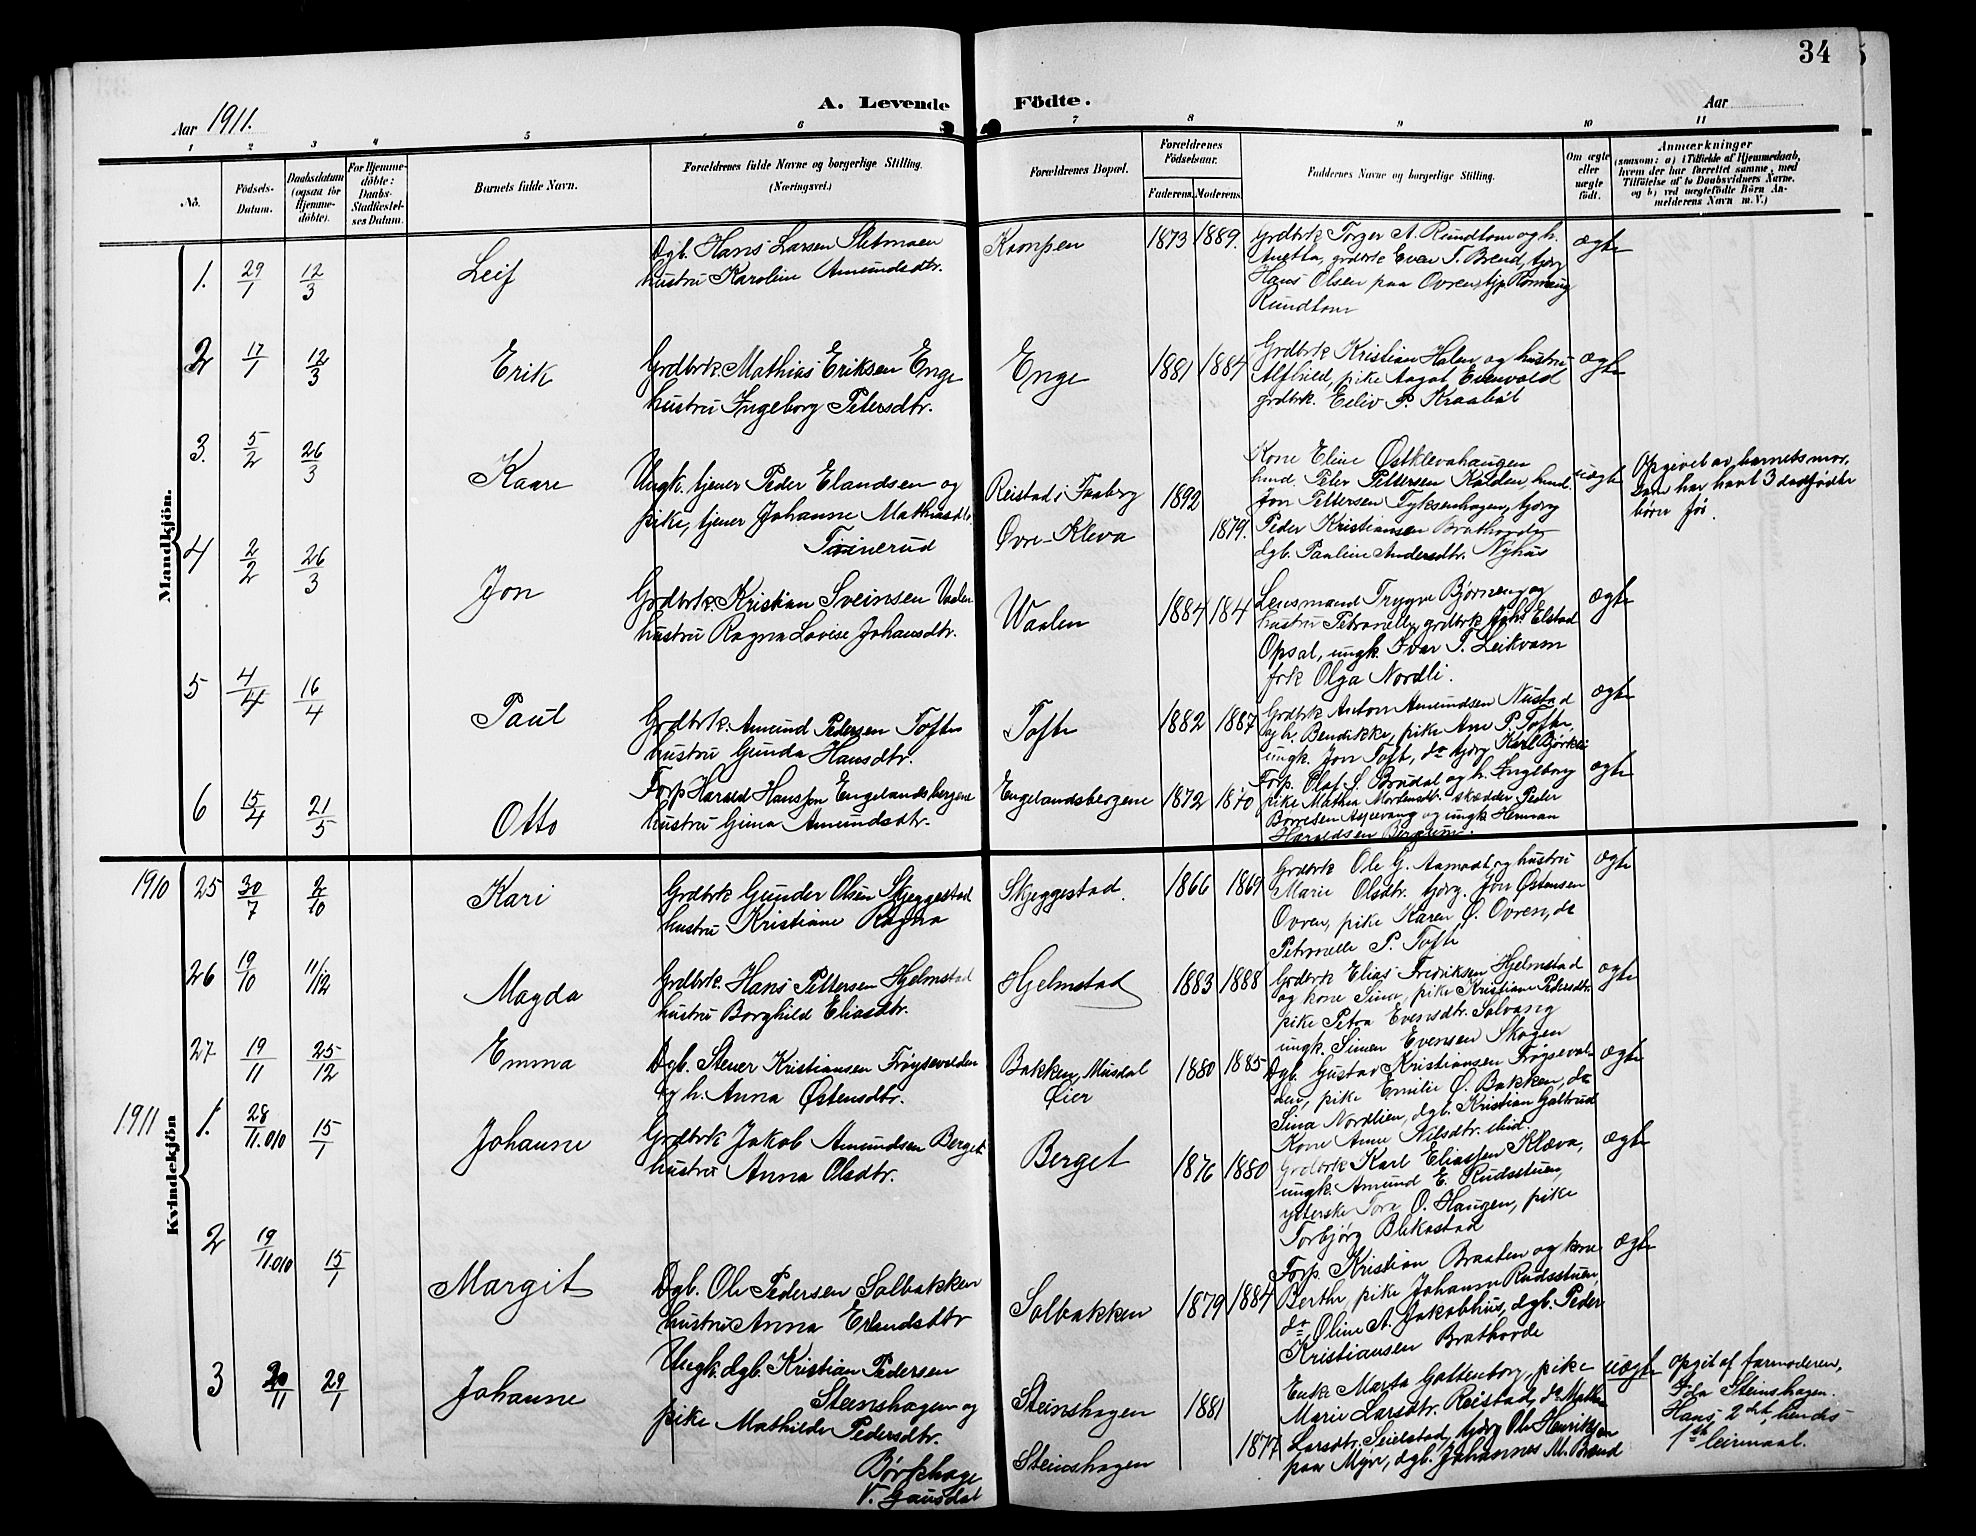 34
A. Levende Födte.
Aar 1911.
Aar
1 2 3 4 5 6 7 8 9 10 11
No.
Födsels-Datum.
Daabsdatum (ogsaa for Hjemme-döbte).
For Hjemme-döbte: Daabs-Stadfæstel-ses Datum.
Barnets fulde Navn.
Forældrenes fulde Navne og borgerlige Stilling. (Næringsvei.)
Forældrenes Bopæl.
Forældrenes Födselsaar.
Faderens. Moderens.
Faddernes Navne og borgerlige Stilling.
Om ægte eller uægte født.
Anmærkninger
(saasom: a) i Tilfælde af Hjemmedaab, hvem der har forrettet samme, med Tilföielse af to Daabsvidners Navne, og b) ved uægtefödte Börn Anmelderens Navn m. V.)
Mandkjön.
1. 29/1 12/3 Leif
Dgb. Hans Larsen Sletmoen
hustru Karoline Amundsdtr.
Kampen 1873 1889.
Grdbrk Torger A. Rundtom og h.
Anetta, grdbrk Evar T. Brend, tjorg
Hans Olsen paa Ovren, tjp. Rønnaug
Rundtom
ægte
2 17/1 12/3 Erik
Grdbrk. Mathias Eriksen Enge
hustru Ingeborg Petersdtr.
Enge 1881 1884
Grdbrk Kristian Holen og hustru
Alfhild, pike Aagot Evenvold
grdbrk. Eeliv P. Kraabøl
ægte
3. 5/2 26/3 Kaare
Ungk. tjener Peder Elandsen og
pike, tjener Johanne Mathiasdtr.
Reistad i Faaberg 1892
Øvre-Kleva 1879.
Kone Eline Østklevahaugen
husd. Peter Pettersen Kalden, husd.
Jon Pettersen Fyksenhagen, tjorg
Peder Kristiansen Brathorde
dgb. Pauline Andersdtr. Nyhus
uægte
Opgivet av barnets mor.
Dem har havt 3 dødfødte
børn før.
4 2/2 26/3 Jon
Grdbrk. Kristian Sveinsen Vaalen
hustru Ragna Lovise Johansdtr.
Waalen 1884 184
Lensmand Trygve Bjørneng og
hustru Petronelle, grdbrk Joh. Elstad
Opsal, ungk. Ivar T. Leikvam
frk Olga Nordli.
ægte
5 4/4 16/4 Paul
Grdbrk. Amund Pedersen Tofte
hustru Gunda Hansdtr.
Tofte 1882 1887
Grdbrk Anton Amundsen Nustad
og h. Bendikke, pike Ane P. Tofte,
ungk. Jon Toft, do tjorg Karl Bjørkli
ægte
6 15/4 21/5 Otto
Forp Harald Hanssen Engelandsbergene
hustru Gina Amundsdtr.
Engelandsbergene 1872 1870
Forp. Olaf S. Brudal og h. Ingeborg
pike Mathea Mortensdtr. skædder Peder
og ungk Herman
Haraldsen
ægte
Kvindekjön
1910 25 30/7 2/10 Kari
Grdbrk Gunder Olsen Skjeggestad
hustru Kristiane Ragna
Skjeggestad. 1866 1869
Grdbrk Ole G. Aamodt og hustru
Marie Olsdtr. tjorg. Jon Østensen
Ovren, pike Karen O. Ovren, do
Petronelle P. Tofte
ægte
26 19/10 11/12 Magda
Grdbrk. Hans Pettersen Hjelmstad
hustru Borghild Eliasdtr.
Hjelmstad 1883 1888
Grdbrk Elias Fredriksen Hjelmstad
og kone Sina, pike Kristiane Pedersdtr.
pike Petra Evensdtr. Solvang
ungk. Simen Evensen Skogen
ægte
27 19/11 25/12 Emma
Dgb. Stener Kristiansen Frøysevolden
og h. Anna Østensdtr.
Bakken, Musdal
Øier
1880 1885
Dgb. Gustav Kristiansen Frøysevol-
den, pike Emilie O. Bakken, do
Sina Nordlien, dgb. Kristian Galtrud
ægte
1911 1. 28/11.010 15/1 Johanne
Grdbrk Jakob Amundsen Berget
hustru Anna Olsdtr.
Berget 1876 1880
Kone Anne Nilsdtr.
Grdbrk Karl Eliassen Klæva,
ungk. Amund E. Rudsstuen,
Tora O. Haugen, pike
Torbjørg Blekastad
ægte
2 19/11.010 15/1 Margit
Dgb. Ole Pedersen Solbakken
hustru Anna Erlandsdtr
Solbakken 1879 1884
Forp. Kristian Braaten og kone
Berthe, pike Johanne Rudsstuen,
do Oline A. Jakobhus, dgb. Peder
Kristiansen Brathorde
ægte
3 20/11 29/1 Johanne
Ungk. dgb. Kristian Pedersen
Steinshagen og
pike Mathilde Pedersdtr.
V. Gausdal
Steinshagen 1881
Steinshagen 1877
Enke Marta Gottenborg, pike
Marie Larsdtr. Reistad, do
Larsdtr. Seielstad, tjorg Ole Henriksen
paa Myre, dgb. Johannes M. Brend
uægte
opgit af farmoderen,
Steinshagen.
Hans 2det, hendes
1ste leirmaal.